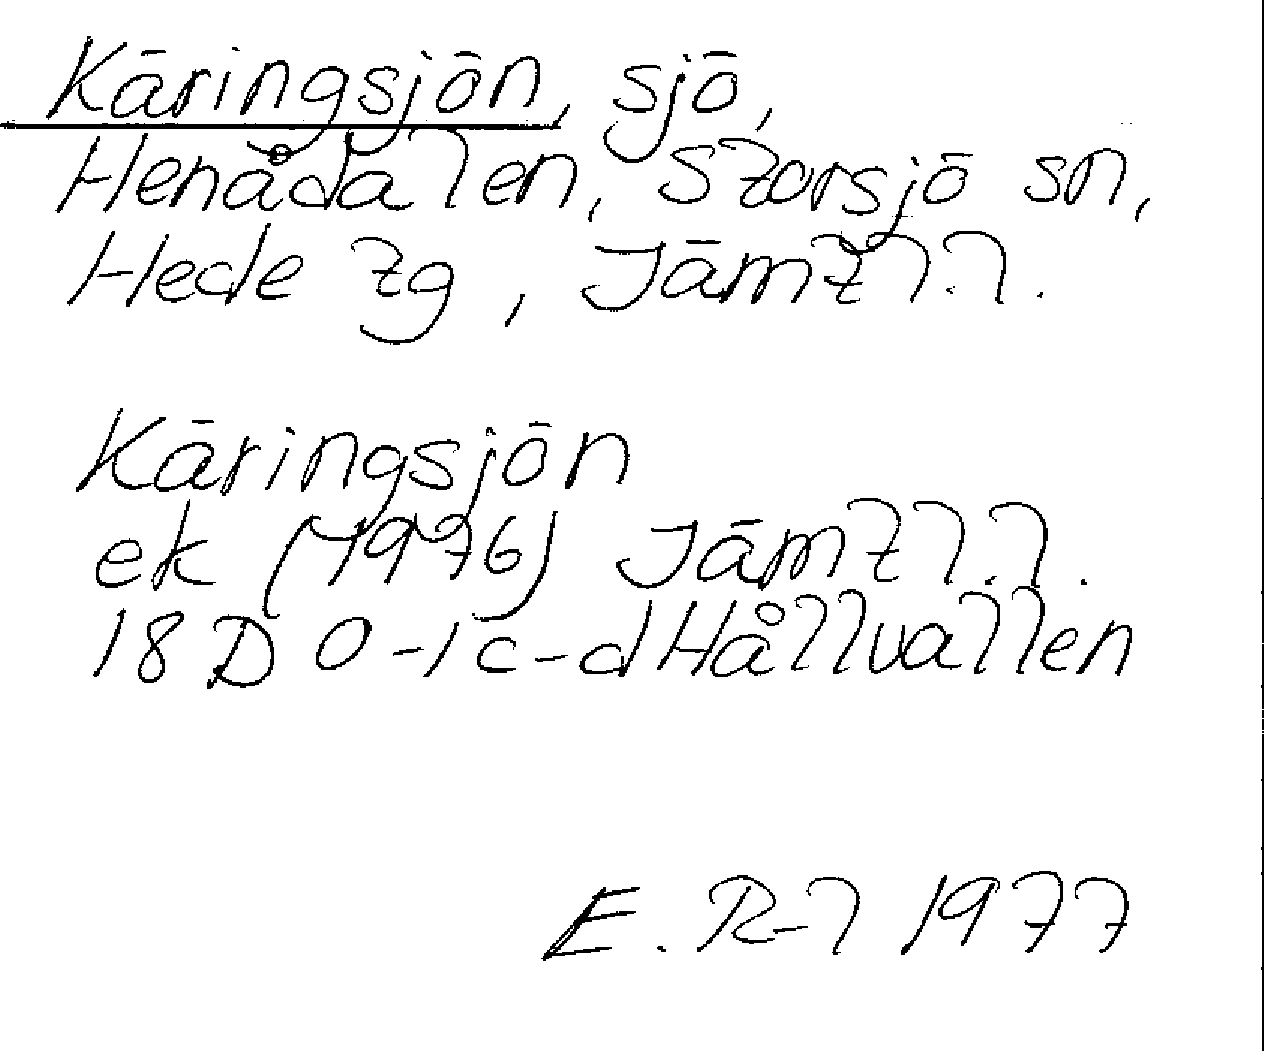 Käringsjön, sjö,
Henådalen, Storsjö sn,
Hede tg, Jämtl.l.
Käringsjön
ek (1976) Jämtl.l.
18 D 0-1 c-d Hållvallen
E. R-l 1977